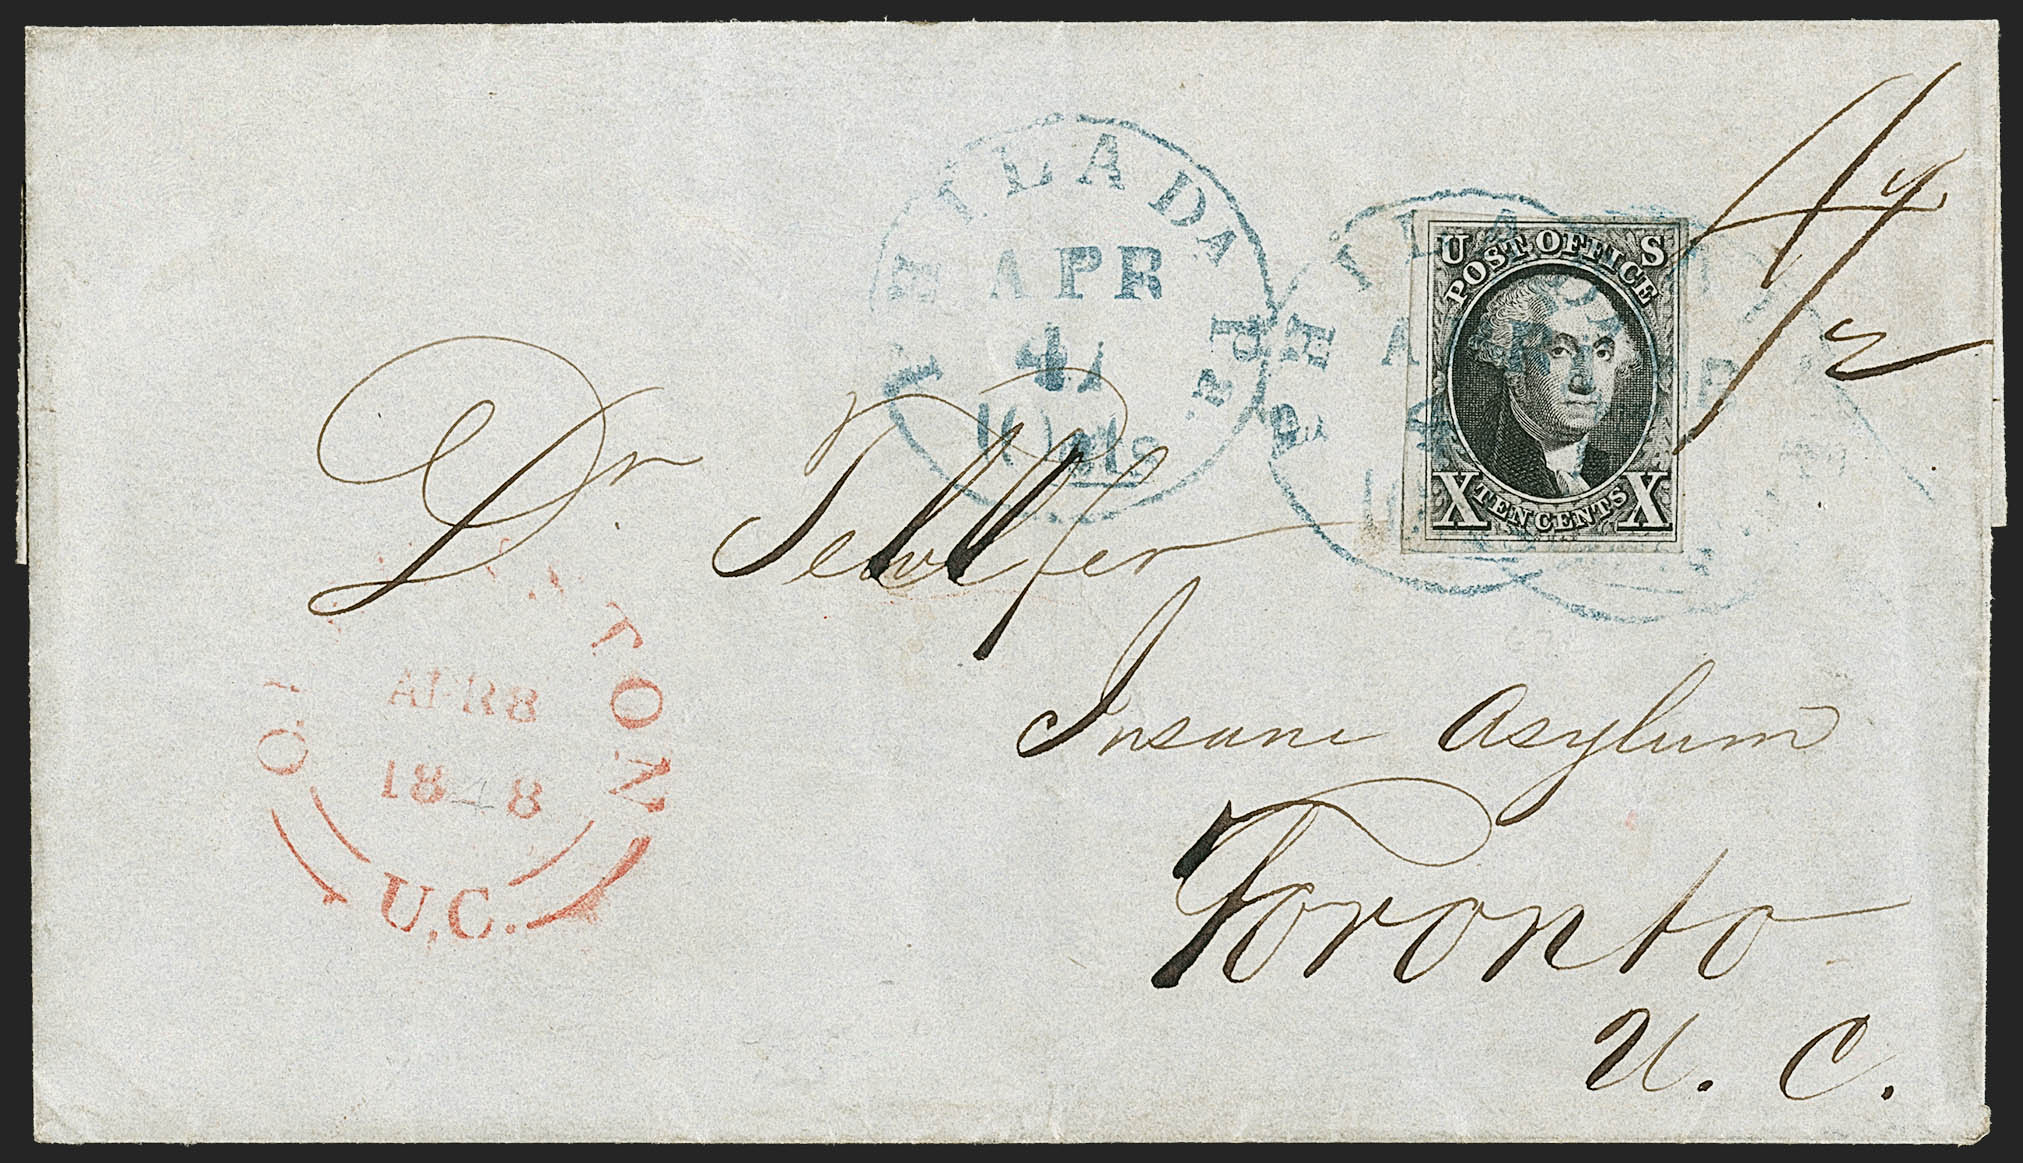 PHILADA Pa.
APR
4
10cts
PHILADA
4
U S
POST OFFICE
X TEN CENTS X
Dr Telfer
Insane Asylum
Toronto
U. C.
TON
APR 8
1848
U.C.